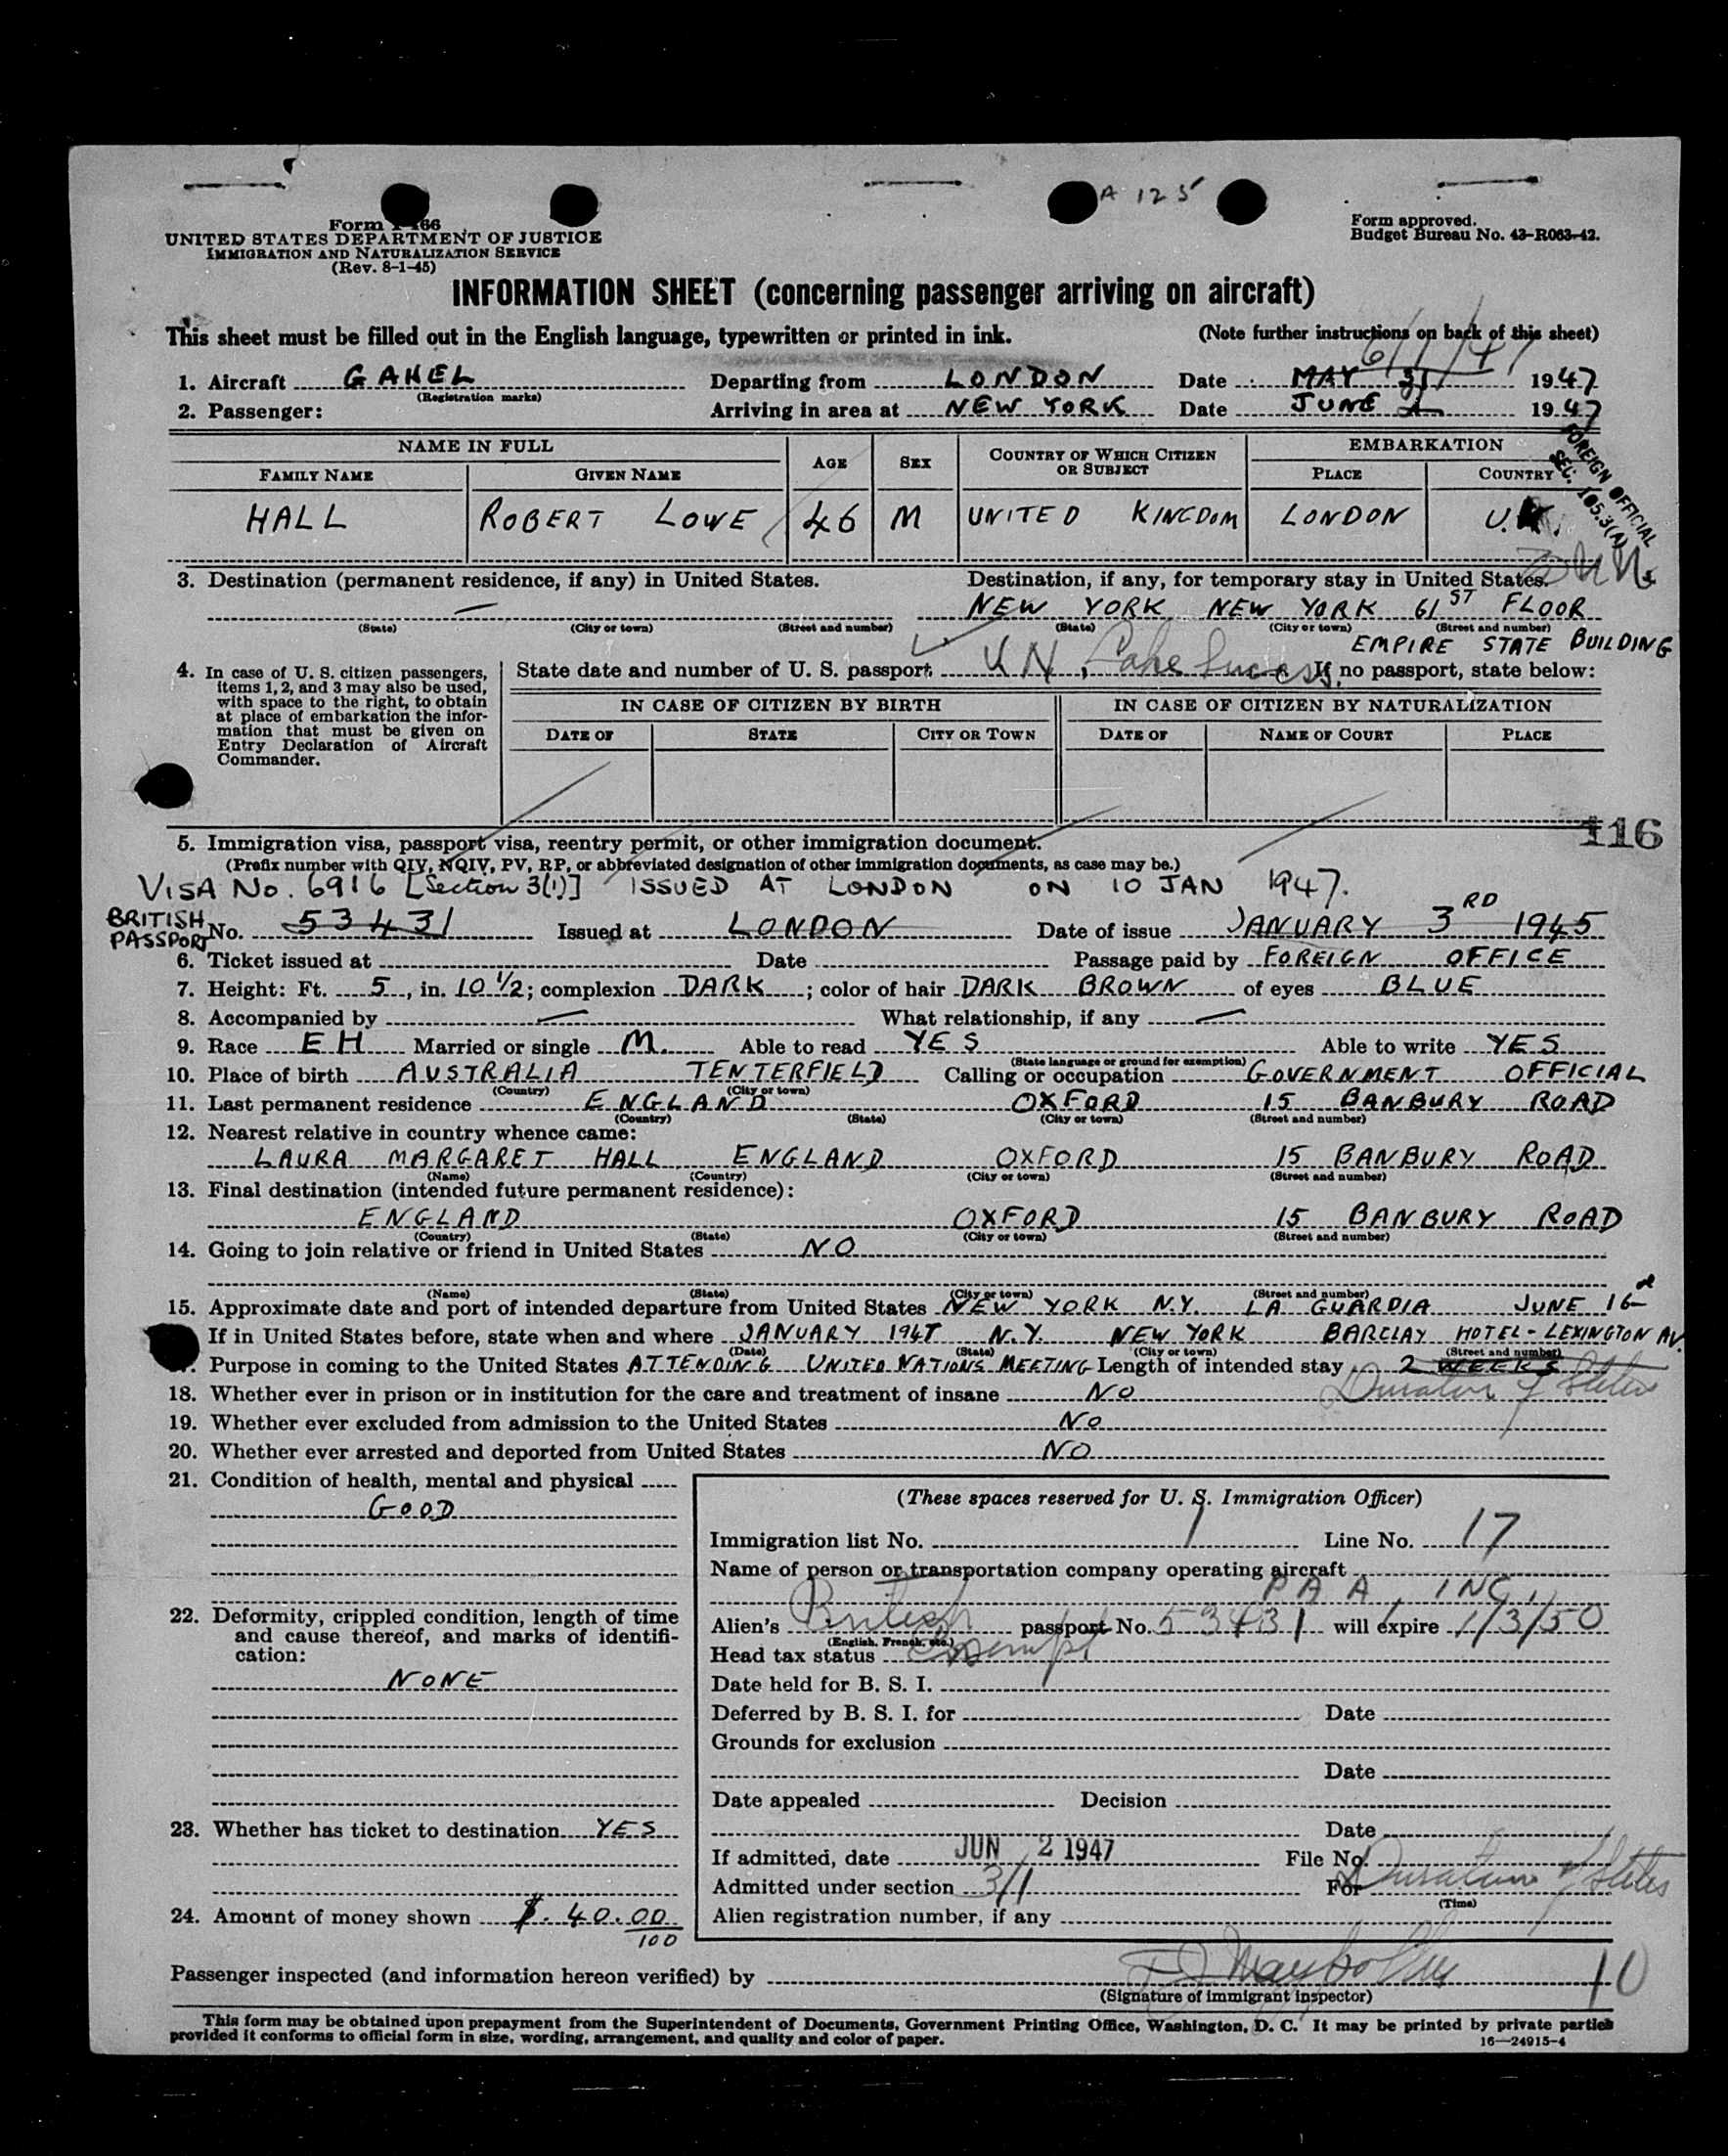 A 125
Form I-466
UNITED STATES DEPARTMENT OF JUSTICE
IMMIGRATION AND NATURALIZATION SERVICE
(Rev. 8-1-45)
Form approved.
Budget Bureau No. 43-R063-42.
INFORMATION SHEET (concerning passenger arriving on aircraft)
This sheet must be filled out in the English language, typewritten or printed in ink. (Note further instructions on back of this sheet)
6/1/47
1. Aircraft GAHEL Departing from LONDON Date MAY 31 1947
(Registration marks)
2. Passenger: Arriving in area at NEW YORK Date JUNE 1947
NAME IN FULL AGE SEX COUNTRY OF WHICH CITIZEN OR SUBJECT EMBARKATION
FAMILY NAME GIVEN NAME PLACE COUNTRY
FOREIGN OFFICIAL
SEC. 105.3(A)
HALL ROBERT LOWE 46 M UNITED KINGDOM LONDON U.K.
3. Destination (permanent residence, if any) in United States. Destination, if any, for temporary stay in United States.
— NEW YORK NEW YORK 61ST FLOOR
(State) (City or town) (Street and number) (State) (City or town) (Street and number)
EMPIRE STATE BUILDING
4. In case of U. S. citizen passengers, items 1, 2, and 3 may also be used, with space to the right, to obtain at place of embarkation the information that must be given on Entry Declaration of Aircraft Commander.
State date and number of U. S. passport UN, Lake Success If no passport, state below:
IN CASE OF CITIZEN BY BIRTH IN CASE OF CITIZEN BY NATURALIZATION
DATE OF STATE CITY OR TOWN DATE OF NAME OF COURT PLACE
116
5. Immigration visa, passport visa, reentry permit, or other immigration document.
(Prefix number with QIV, NQIV, PV, RP, or abbreviated designation of other immigration documents, as case may be.)
VISA No. 6916 [Section 3(1)] ISSUED AT LONDON ON 10 JAN 1947.
BRITISH PASSPORT No. 53431 Issued at LONDON Date of issue JANUARY 3RD 1945
6. Ticket issued at Date Passage paid by FOREIGN OFFICE
7. Height: Ft. 5, in. 10 1/2; complexion DARK; color of hair DARK BROWN of eyes BLUE
8. Accompanied by — What relationship, if any —
9. Race EH Married or single M. Able to read YES Able to write YES
(State language or ground for exemption)
10. Place of birth AUSTRALIA TENTERFIELD Calling or occupation GOVERNMENT OFFICIAL
(Country) (City or town)
11. Last permanent residence ENGLAND OXFORD 15 BANBURY ROAD
(Country) (State) (City or town) (Street and number)
12. Nearest relative in country whence came:
LAURA MARGARET HALL ENGLAND OXFORD 15 BANBURY ROAD
(Name) (Country) (City or town) (Street and number)
13. Final destination (intended future permanent residence):
ENGLAND OXFORD 15 BANBURY ROAD
(Country) (State) (City or town) (Street and number)
14. Going to join relative or friend in United States NO
(Name) (State) (City or town) (Street and number)
15. Approximate date and port of intended departure from United States NEW YORK N.Y. LA GUARDIA JUNE 16
If in United States before, state when and where JANUARY 1947 N.Y. NEW YORK BARCLAY HOTEL - LEXINGTON AV.
(Date) (State) (City or town) (Street and number)
Purpose in coming to the United States ATTENDING UNITED NATIONS MEETING Length of intended stay 2 WEEKS
Duration of Status
18. Whether ever in prison or in institution for the care and treatment of insane NO
19. Whether ever excluded from admission to the United States NO
20. Whether ever arrested and deported from United States NO
21. Condition of health, mental and physical
GOOD
22. Deformity, crippled condition, length of time and cause thereof, and marks of identification:
NONE
23. Whether has ticket to destination YES
24. Amount of money shown $. 40.00/100
(These spaces reserved for U. S. Immigration Officer)
Immigration list No. 1 Line No. 17
Name of person or transportation company operating aircraft
P A A, INC.,
Alien's British passport No. 53431 will expire 1/3/50
(English, French, etc.)
Head tax status Exempt
Date held for B. S. I.
Deferred by B. S. I. for Date
Grounds for exclusion
Date
Date appealed Decision
Date
If admitted, date JUN 2 1947 File No.
Admitted under section 3/1 For Duration of Status
(Time)
Alien registration number, if any
Passenger inspected (and information hereon verified) by
10
(Signature of immigrant inspector)
This form may be obtained upon prepayment from the Superintendent of Documents, Government Printing Office, Washington, D. C. It may be printed by private parties
provided it conforms to official form in size, wording, arrangement, and quality and color of paper.
16—24915-4